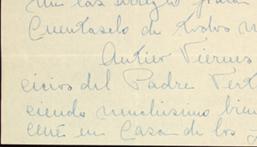 me las arreglo para
Cuentaselo de todos m
Antier Viernes
cicios del Padre Tert
ciendo muchisimo bien
cené en Casa de los